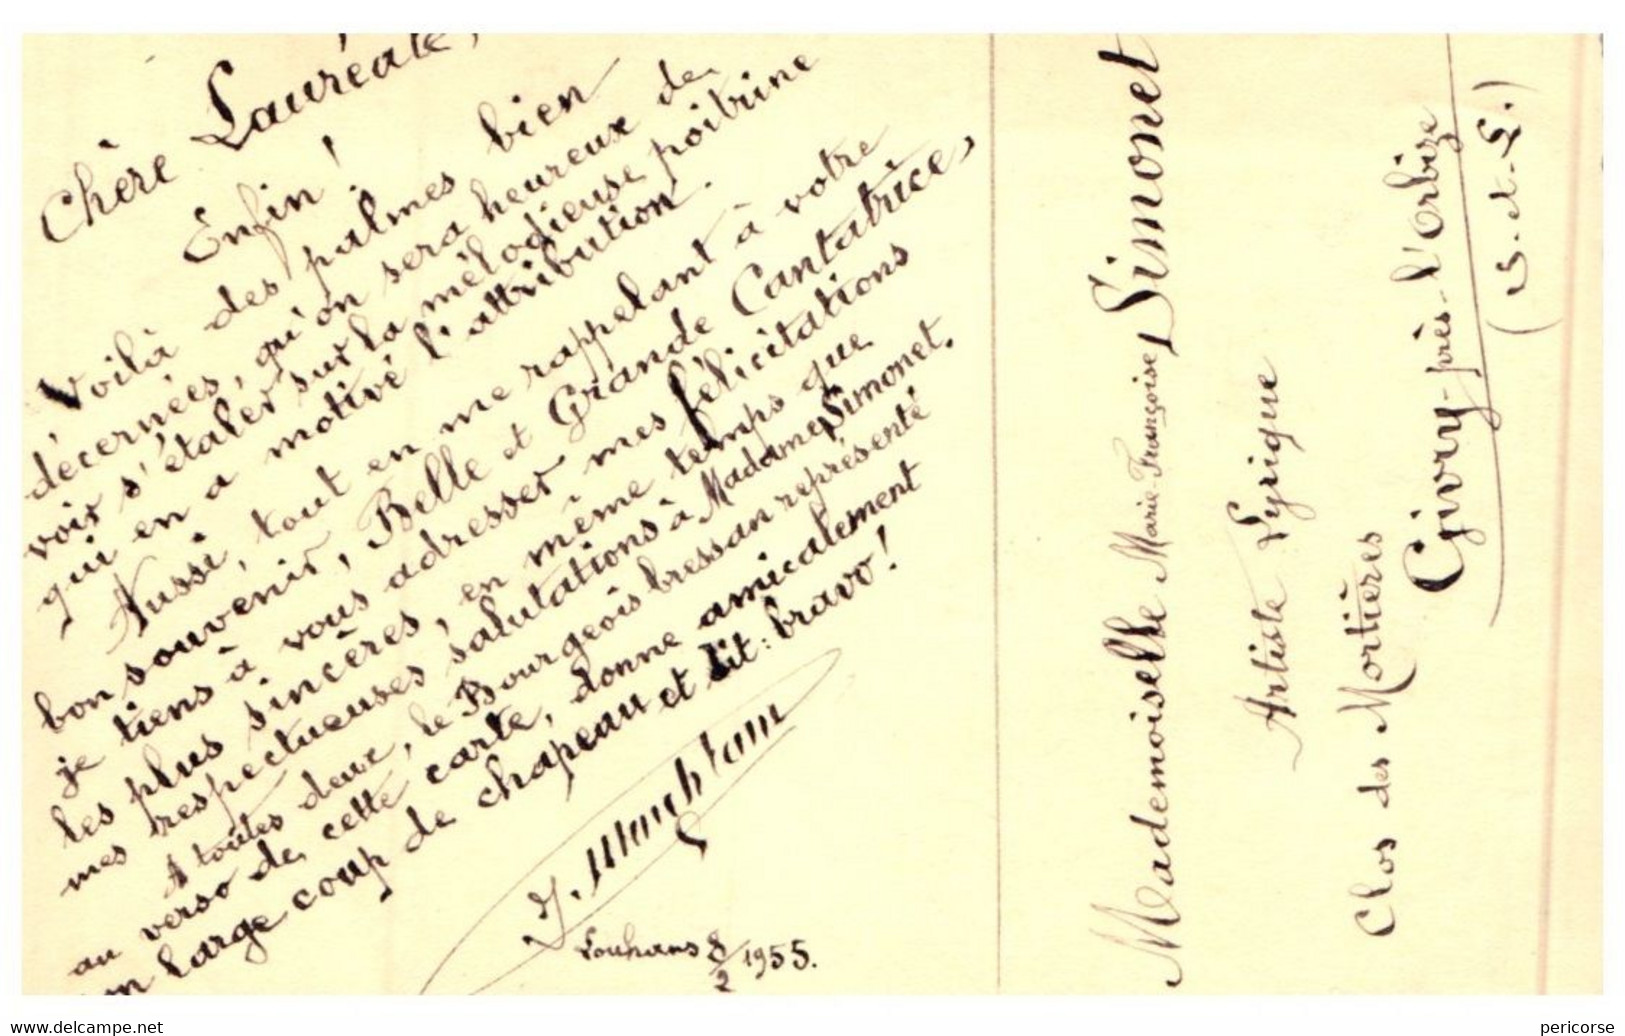 Chère Lauréate,
Enfin !
Voilà des palmes bien
décernées, qu'on sera heureux de
voir s'étaler sur la mélodieuse poitrine
qui en a motivé l'attribution.
Aussi, tout en me rappelant à votre
bon souvenir, Belle et Grande Cantatrice,
je tiens à vous adresser mes félicitations
les plus sincères, en même temps que
mes respectueuses salutations à Madame Simonet.
A toutes deux, le Bourgeois bressan représenté
au verso de cette carte, donne amicalement
un large coup de chapeau et dit : bravo !
Louhans 8/2 1955.
Mademoiselle Marie-Françoise Simonet
Artiste Lyrique
Clos des Mortières
Givry-près-l'Orbize
(S.-et-L.)
www.delcampe.net
pericorse